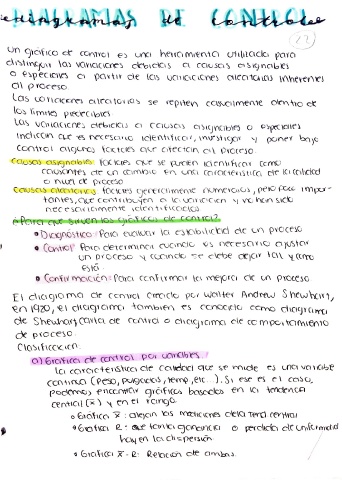 DIAGRAMAS DE CONTROL
diagramas de controles
Un gráfico de control es una herramienta utilizada para
distinguir las variaciones debidas a causas asignables
o especiales a partir de las variaciones aleatorias inherentes
al proceso.
Las variaciones aleatorias se repiten casualmente dentro de
los límites predecibles.
Las variaciones debidas a causas asignables o especiales
indican que es necesario identificar, investigar y poner bajo
control algunos factores que afectan al proceso.
Causas asignables: factores que se pueden identificar como
causantes de un cambio en una característica de la calidad
o nivel de proceso
Causas aleatorias: factores generalmente numerosos, pero poco impor-
tantes, que contribuyen a la variación y no han sido
necesariamente identificados
¿Para qué sirven los gráficos de control?
• Diagnóstico: Para evaluar la estabilidad de un proceso
• Control: Para determinar cuando es necesario ajustar
un proceso y cuando se debe dejar tal y como
está.
• Confirmación: Para confirmar la mejora de un proceso.
El diagrama de control creado por Walter Andrew Shewhart,
en 1920, el diagrama también es conocido como diagrama
de Shewhart, carta de control o diagrama de comportamiento
de proceso.
Clasificación:
a) Gráficas de control por variables.
La característica de calidad que se mide es una variable
continua (peso, pulgadas, temp, etc.). Si ese es el caso,
podemos encontrar gráficos basados en la tendencia
central (x̄) y en el rango
• Gráfica x̄: alejan las mediciones de la tend central
• Gráfica R: que tanta ganancia o perdida de uniformidad
hay en la dispersión
• Gráfica x̄-R: Relación de ambas.